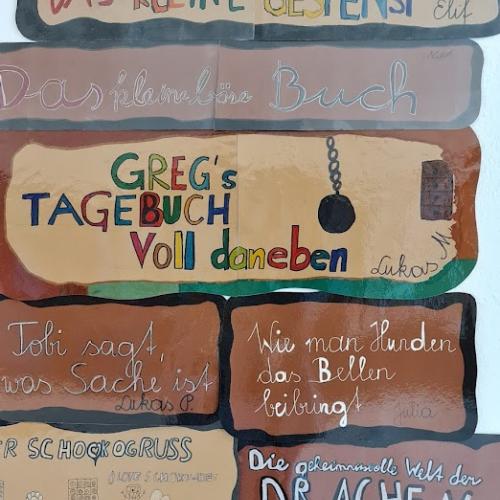 DAS KLEINE GESPENST
Elif
Das kleine böse Buch
GREG's
TAGEBUCH
Voll daneben
Lukas M
Tobi sagt,
was Sache ist
Lukas P.
Wie man Hunden
das Bellen
beibringt
Julia
ER SCHOCKOGRUSS
Die geheimnisvolle Welt der
DRACHEN